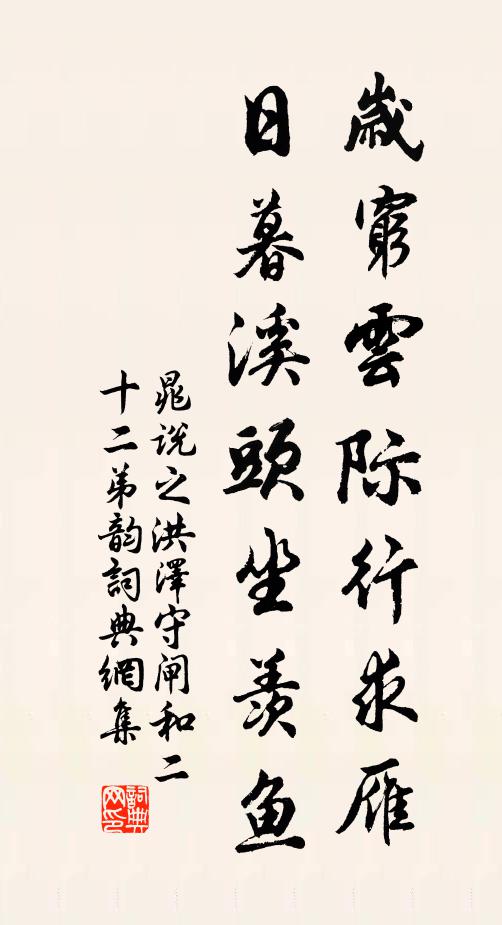 歲窮雲际行求雁
日暮溪頭坐羨鱼
晁说之洪澤守闸和二
十二弟韵詞典網集
詞典网印